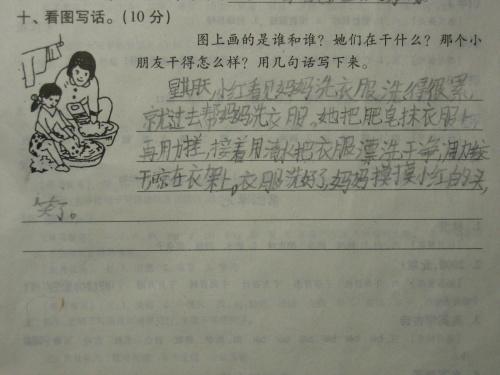 十、看图写话。(10分)
图上画的是谁和谁?她们在干什么?那个小
朋友干得怎么样?用几句话写下来。
星期天,小红看见妈妈洗衣服洗得很累,
就过去帮妈妈洗衣服。她把肥皂抹衣服上
再用力搓,接着用清水把衣服漂洗干净,用力绞
干晾在衣架上。衣服洗好了,妈妈摸摸小红的头,
笑了。